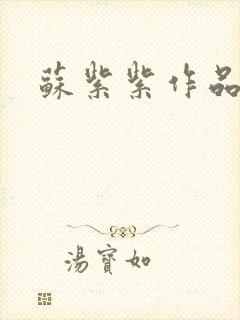 蘇紫紫作品
湯寶如